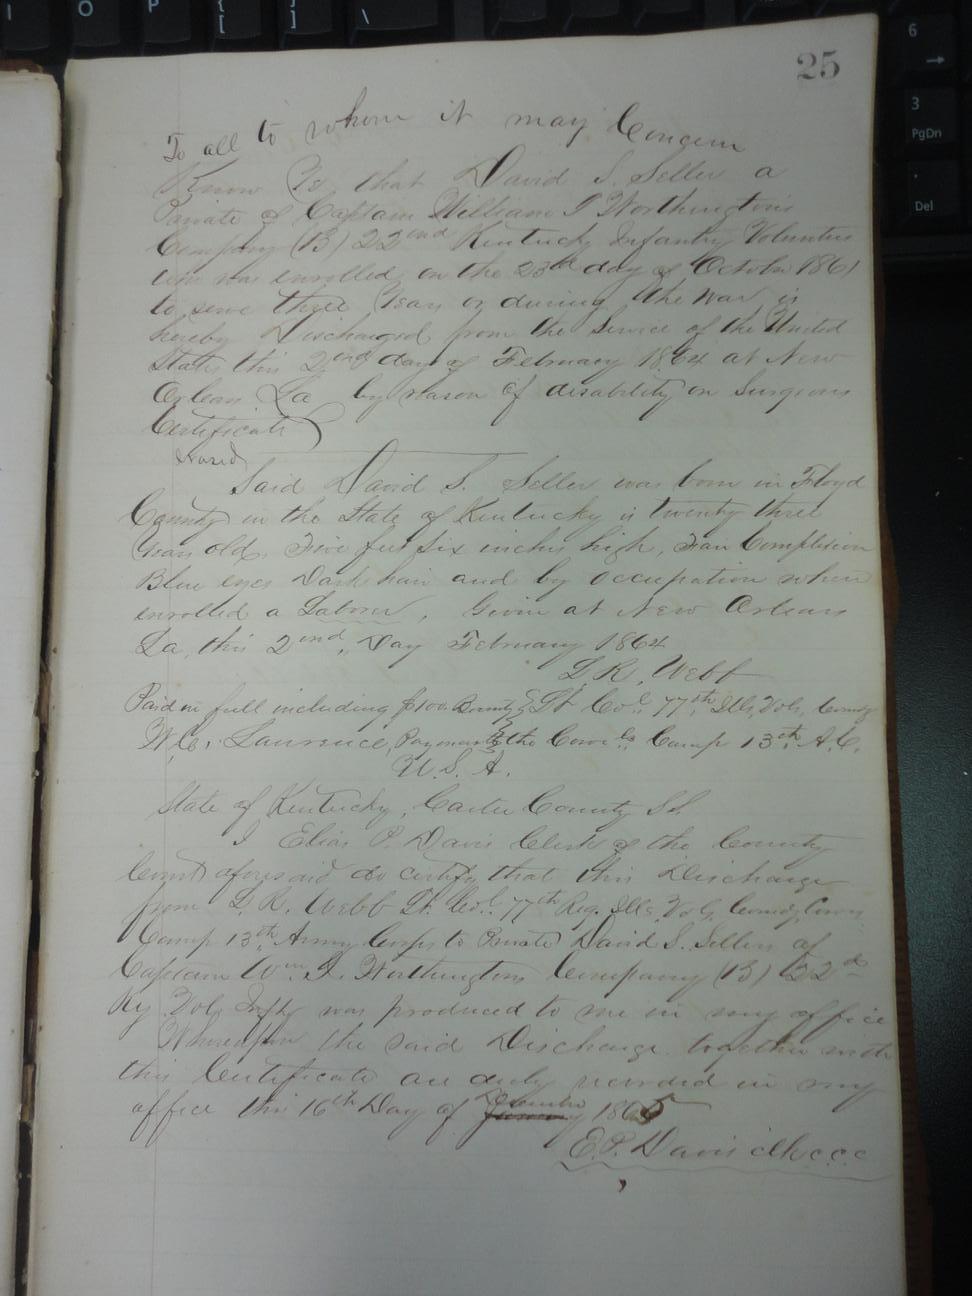 I
O
P
{
[
}
]
\
6
→
3
PgDn
.
Del
25
To all to whom it may Concern
Know Ye that David S. Seller a
Private of Captain William T Worthingtons
Company (B) 22nd Kentucky Infantry Voluntee
was enrolled on the 23rd day of October 1861
to serve three Years or during the war is
hereby Discharged from the Service of the United
States this 2nd day of February 1864 at New
Orleans La by reason of disability on Surgeons
Certificate
Said David S. Seller was born in Floyd
County in the State of Kentucky is twenty three
Years old, Five feet six inches high, Fair Complexion
Blue eyes Dark hair and by occupation when
enrolled a Laborer, Given at New Orleans
La, this 2nd, Day February 1864
L R, Webb
Paid in full including $100 Bounty Lt Col. 77th Ills, Vols, Comdg
W.C. Laurence, Paymaster Camp 13th A,C,
U.S.A.
State of Kentucky, Carter County Sct
I Elias P. Davis Clerk of the County
Court aforesaid do certify that this Discharge
from L.R. Webb Lt. Col. 77th Reg. Ills Vols, Comdg Conv
Camp 13th Army Corps to Private David S. Sellers of
Captain Wm. T. Worthingtons Company (B) 22d
Ky Vols Infty was produced to me in my office
Whereupon the said Discharge together with
this Certificate are duly recorded in my
office this 16th Day of 1865
E.P. Davis clk c c c